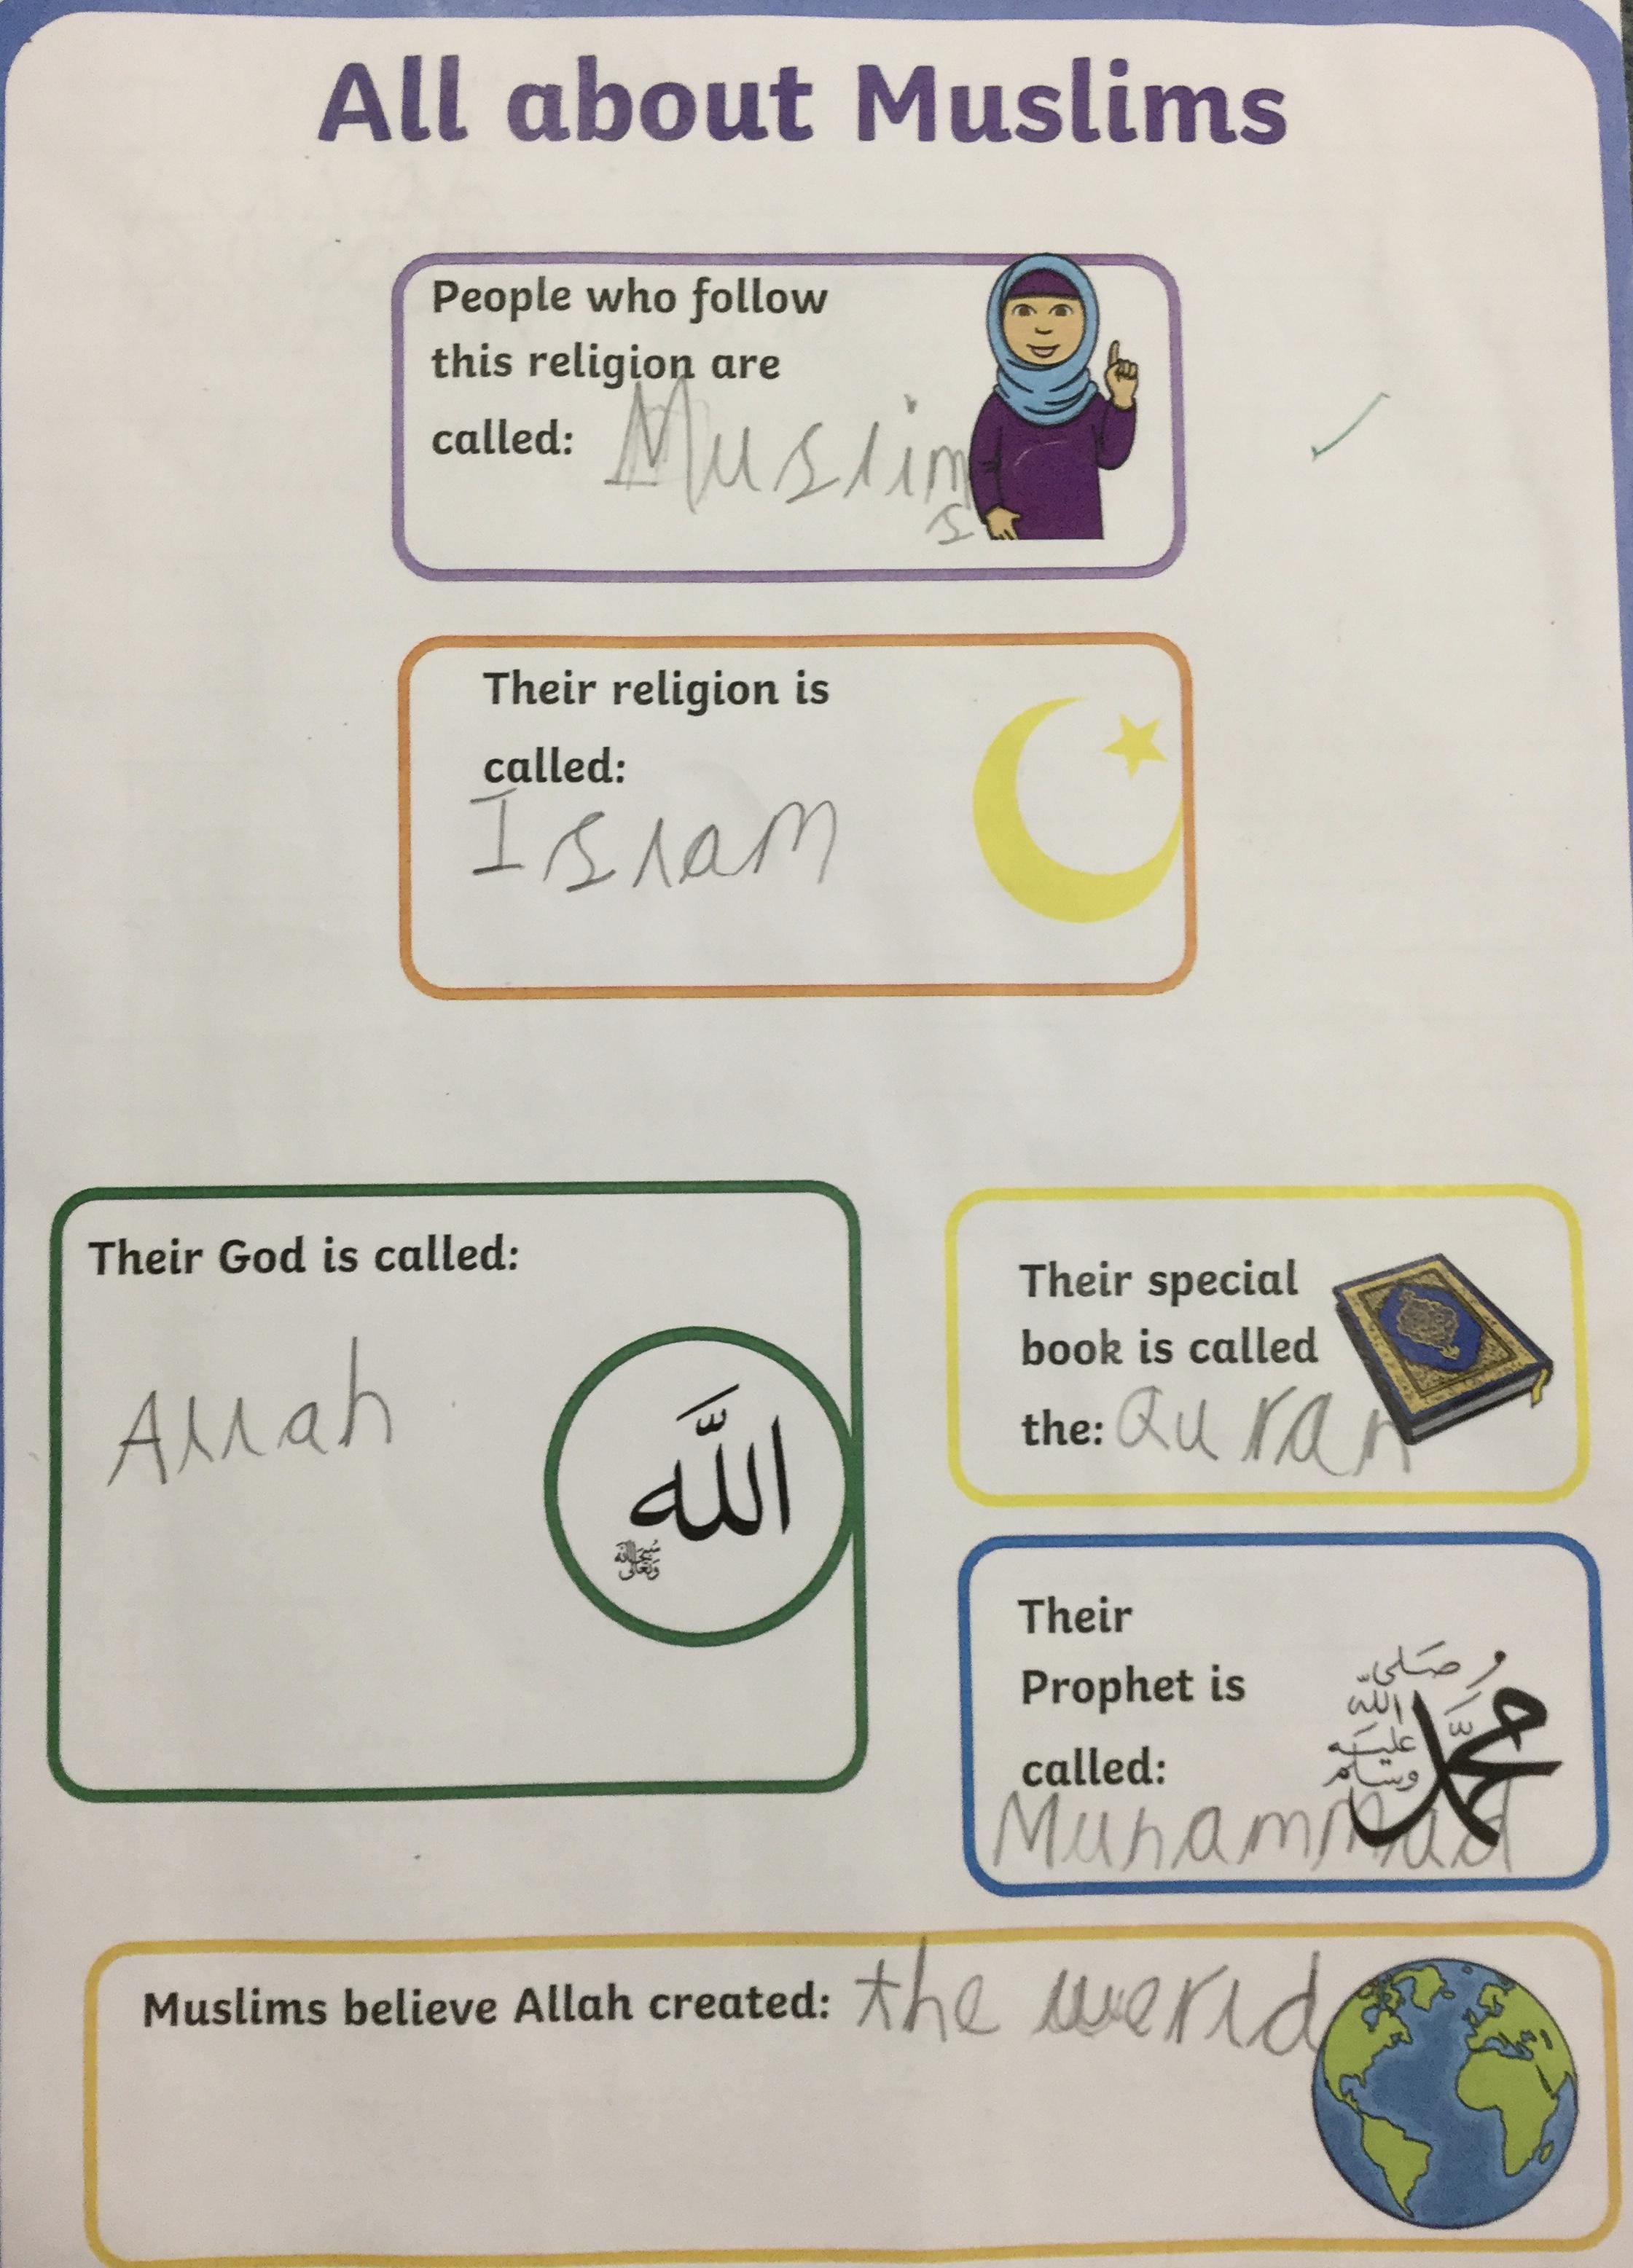 All about Muslims
People who follow
this religion are
called: Muslim
s
Their religion is
called:
Islam
Their God is called:
Allah
الله
سبحانه
وتعالى
Their special
book is called
the: Quran
Their
Prophet is
called:
محمد
صلى
الله
عليه
وسلم
Muhammad
Muslims believe Allah created: the werld